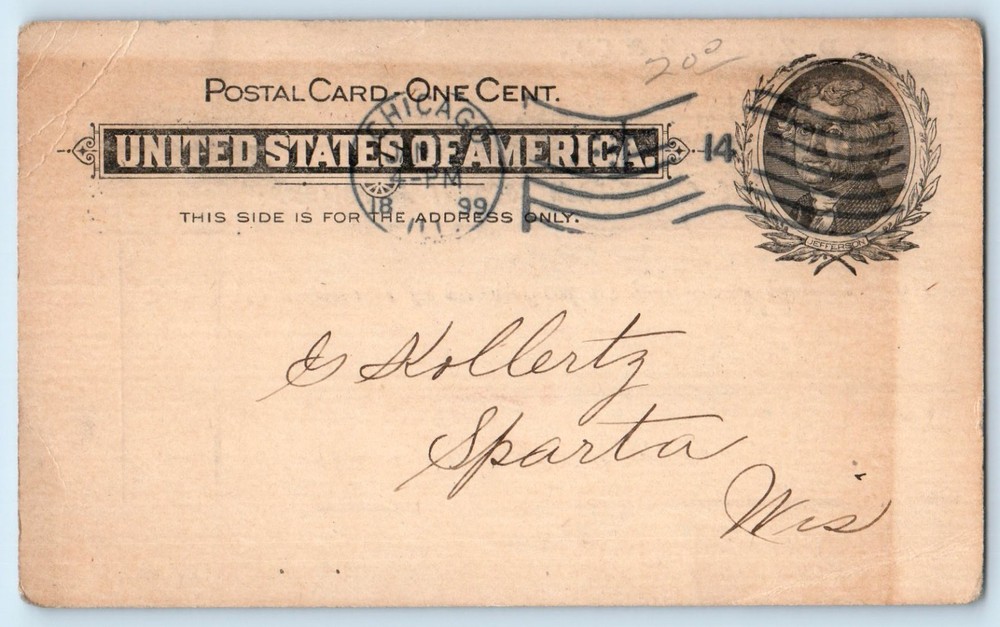 200
POSTAL CARD-ONE CENT.
UNITED STATES OF AMERICA.
THIS SIDE IS FOR THE ADDRESS ONLY.
CHICAGO
-PM
18 99
ILL
14
JEFFERSON
Kollertz
Sparta
Wis